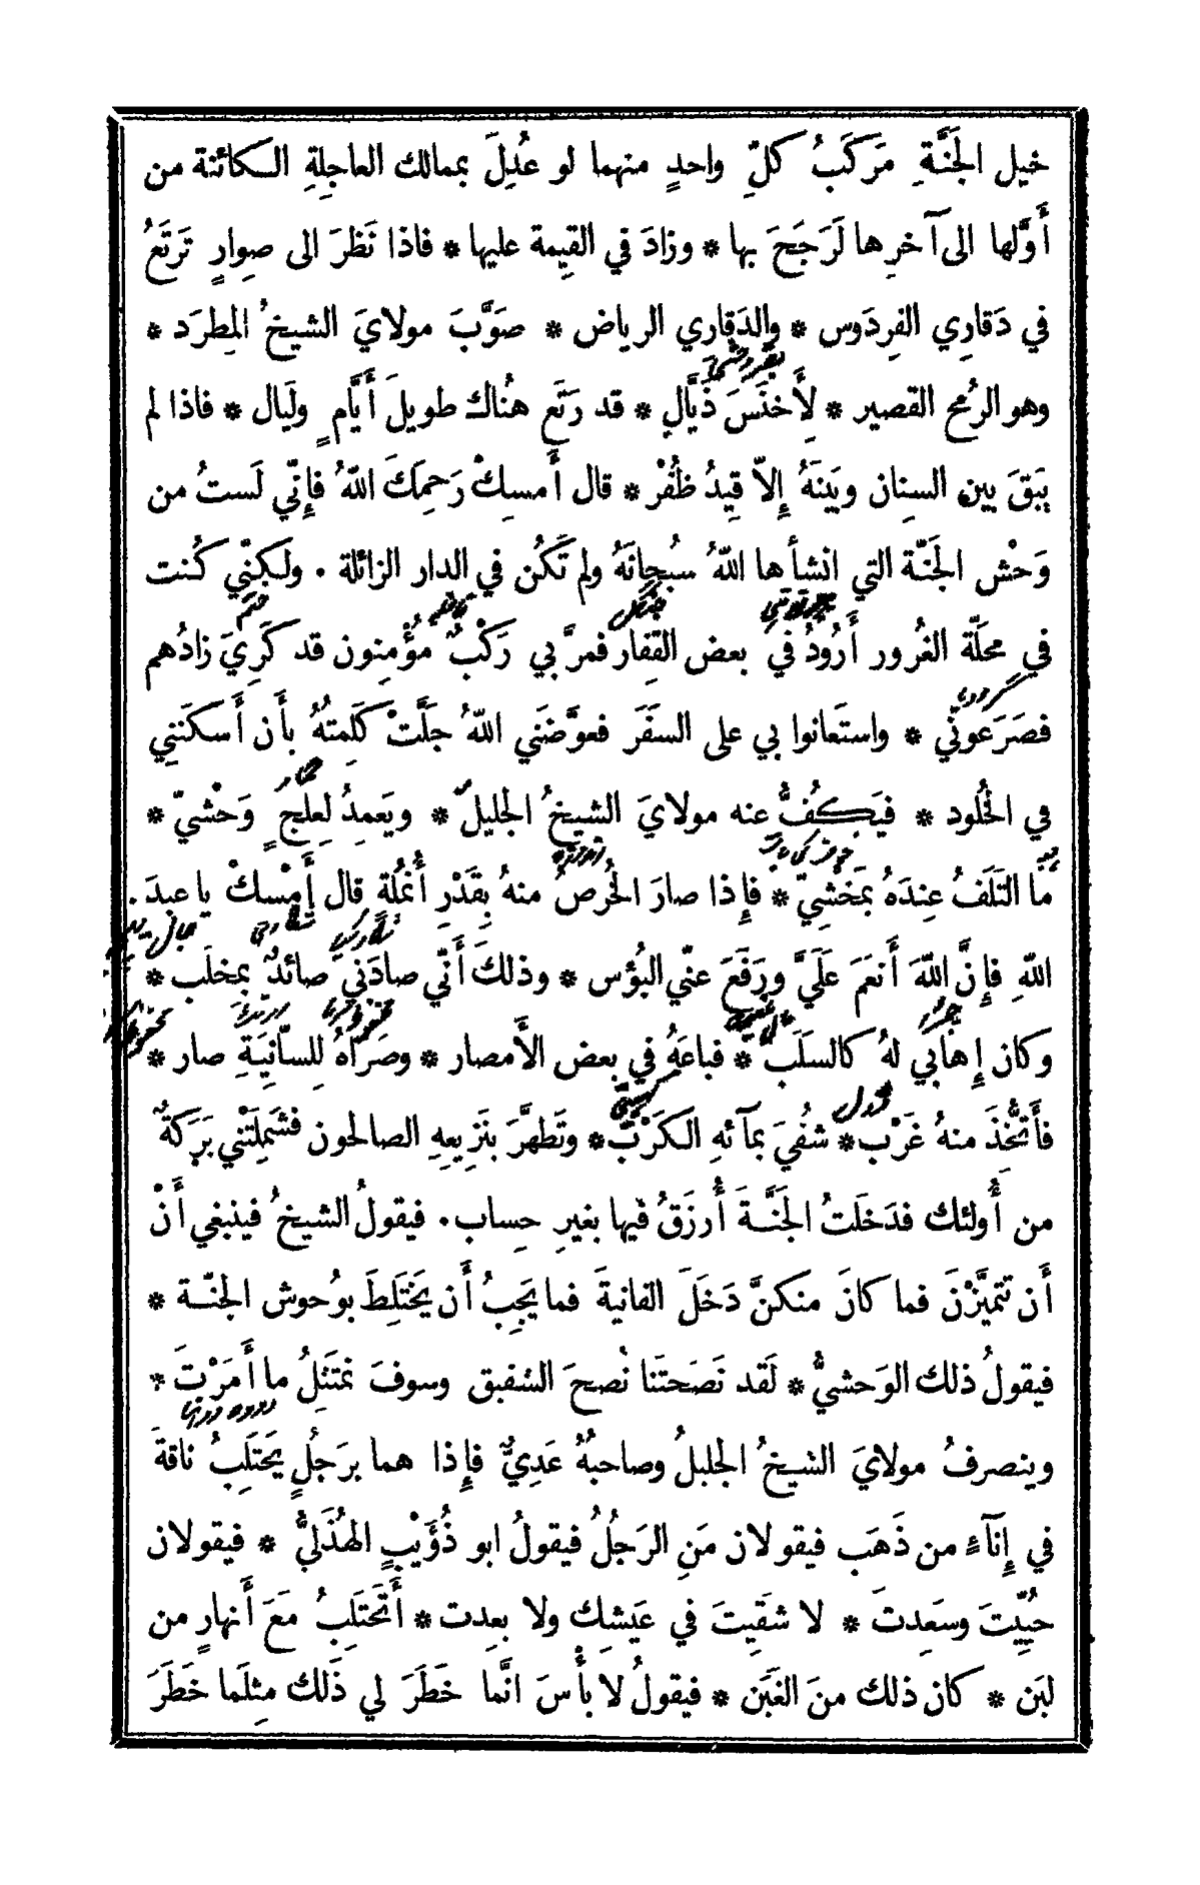 خيل الجَنَّةِ مَركَبُ كلِّ واحدٍ منهما لو عُدِلَ بممالك العاجِلةِ الكائنة من
أَوَّلها الى آخرِها لَرَجَحَ بها * وزادَ في القيِمة عليها * فاذا نَظرَ الى صِوارٍ تَرتَعُ
في دَقارِي الفِردَوس * والدَقاري الرياض * صَوَّبَ مولايَ الشيخُ المِطرَد *
وهو الرُمح القصير * لِأَخنَسَ ذَيَّالٍ * قد رَتَع هُناك طويلَ أَيَّامٍ ولَيال * فاذا لم
يَبقَ بين السِنان وبَينَهُ إِلاّ قِيدُ ظُفُرْ * قال أَمسِكْ رَحِمَكَ اللهُ فإِنّي لَستُ من
وَحْش الجَنّة التي انشأَها اللهُ سُبحانَهُ ولم تَكُن في الدار الزائلة . ولكِنّي كُنت
في مَحلّة الغُرور أَرُودُ في بعض القِفار فمرَّ بي رَكْبٌ مؤْمنون قد كَرِيَ زادُهم
فصَرَعونّي * واستَعانوا بي على السفَرَ فعوَّضَني اللهُ جلَّتْ كَلِمتهُ بأَن أَسكَنَني
في الخُلود * فيَكُفُّ عنه مولايَ الشيخُ الجليل * ويَعمِدُ لِعِلجٍ وَحْشيّ *
ما التَلَفُ عِندَهُ بمَخشِيّ * فإِذا صارَ الخُرصُ منهُ بِقَدْرِ أَنمُلةٍ قال أَمْسكْ يا عبدَ .
اللهِ فإِنَّ اللهَ أَنعَمَ عَلَيَّ ورَفَعَ عنّي البُؤس * وذلكَ أَنّي صادَني صائدٌ بمِخلَب *
وكان إِهابي لهُ كالسلَب * فباعَهُ في بعض الأَمصار * وصَرَاهُ لِلسّانِيَةِ صار *
فأَتخَّذَ منهُ غَرْب * شفُيَ بمآئهِ الكَرْب * وتَطهَّرَ بنَزِيعِهِ الصالحون فشَمِلَتْني بَرَكةٌ
من أُولئك فدَخَلتُ الجَنَّةَ أُرزَقُ فيها بغيرِ حِساب . فيقولُ الشيخُ فينبغي أَنْ
أَن تتميَّزْنَ فما كانَ منكنَّ دَخَلَ الفانيةَ فما يَجِبُ أَن يَختَلِطَ بوُحوش الجنّة *
فيقولُ ذلك الوَحشيُّ * لَقد نَصَحتَنا نُصحَ الشفيق وسوفَ نمتَثلُ ما أَمَرْتَ *
وينصرفُ مولايَ الشيخُ الجليلُ وصاحبُهُ عَدِيٌّ فإِذا هما برَجُلٍ يَحتَلِبُ ناقةً
في إِنآءٍ من ذَهَب فيقولان مَنِ الرَجُلُ فيقولُ ابو ذُؤَيْبٍ الهُذَليُّ * فيقولان
حيُيِّتَ وسَعِدتَ * لا شقَيِتَ في عَيشِك ولا بعِدت * أَتَحتَلِبُ مَعَ أَنهارٍ من
لبَن * كان ذلك منَ الغَبَن * فيقولُ لا بأْسَ انَّما خَطَرَ لي ذَلك مثِلَما خَطَرَ